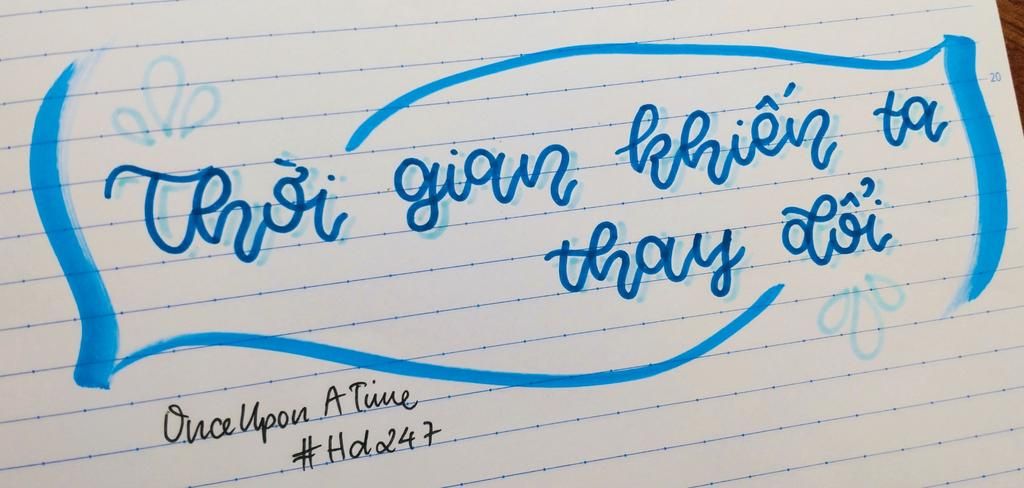 Thời gian khiến ta
thay đổi
Once Upon A Time
#Hd247
20